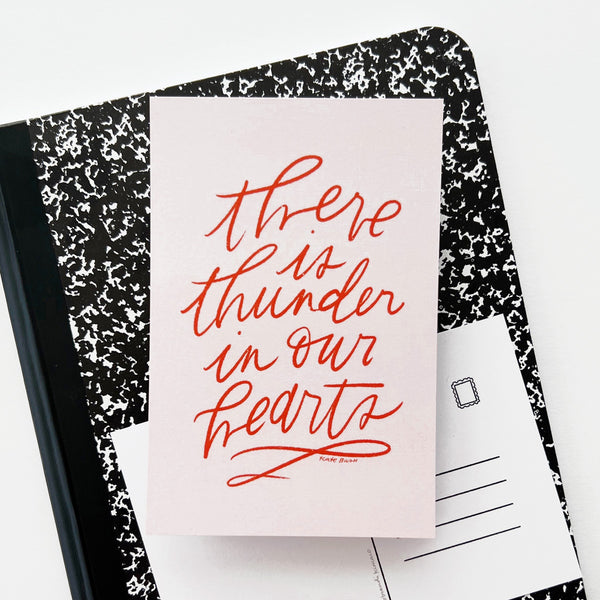 there
is
thunder
in our
hearts
KATE BUSH